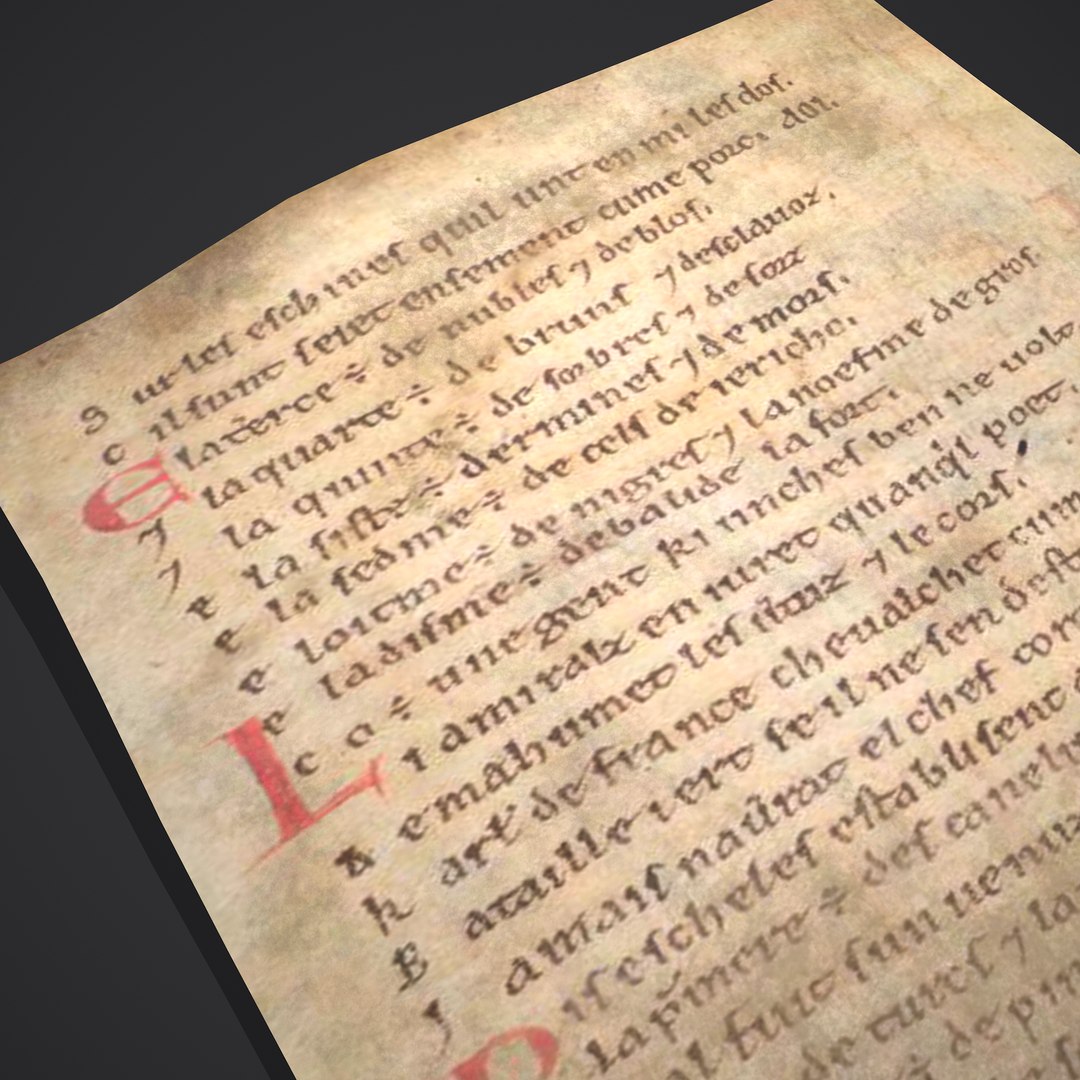 Sur leſ eſchineſ quil unt en mi leſ doſ.
Cil ſunt ſeiet enſement cume porc. aoi.
E la terce ÷ de nubleſ ⁊ de bloſ.
⁊ la quarte ÷ de brunſ ⁊ deſclauoz.
⁊ la quinte ÷ de ſorbreſ ⁊ de ſorz
e la ſiſte ÷ dermineſ ⁊ de morſ.
e la ſedme ÷ de celſ de iericho.
e loitme ÷ de nigreſ ⁊ la noefme de groſ.
e la diſme ÷ de balide la fort.
co ÷ une gent ki uncheſ ben ne uolt
Li amiralz en iuret quanqͥl poet.
De mahumet leſ uertuz ⁊ le corſ.
karl' de france cheualchet cum
Bataille i ert ſe il ne ſen deſt
Jamaiſ naūrat el chef coro
Diſ eſcheleſ eſtabliſent
La pͥmere ÷ deſ canel
al fuit ſun ueni
de turcſ ⁊ la
÷ de p